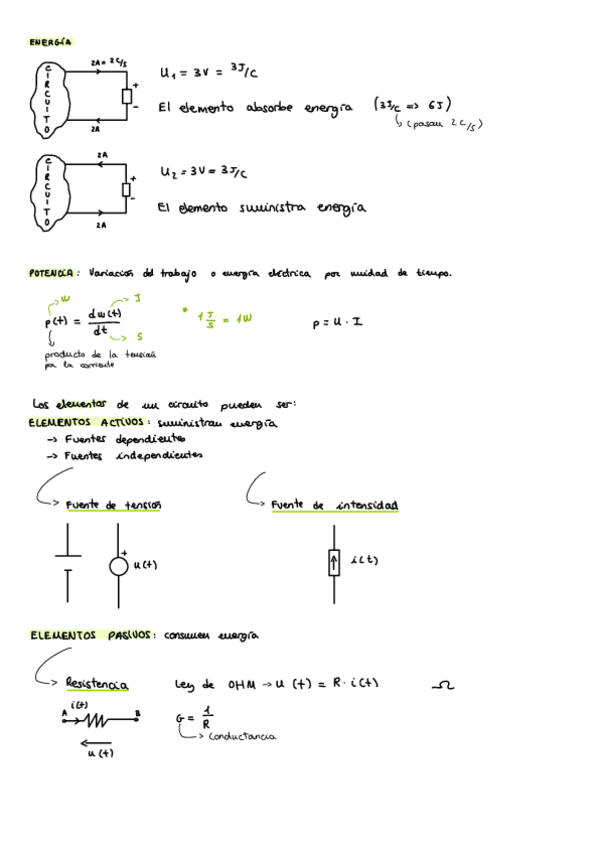 ENERGÍA
CIRCUITO
2A = 2C/s
+
-
2A
U₁ = 3V = 3J/C
El elemento absorbe energía (3J/C => 6J)
(pasan 2C/s)
CIRCUITO
2A
+
-
2A
U₂ = 3V = 3J/C
El elemento suministra energía
POTENCIA: Variación del trabajo o energía eléctrica por unidad de tiempo.
W
J
p(t) = dw(t)/dt
S
* 1 J/S = 1W
p = U · I
producto de la tensión
por la corriente
Los elementos de un circuito pueden ser:
ELEMENTOS ACTIVOS: suministran energía
-> Fuentes dependientes
-> Fuentes independientes
-> Fuente de tension
-> Fuente de intensidad
+
u(t)
i(t)
ELEMENTOS PASIVOS: consumen energía
-> Resistencia
Ley de OHM -> u(t) = R · i(t) Ω
i(t)
A
B
u(t)
G = 1/R
-> Conductancia